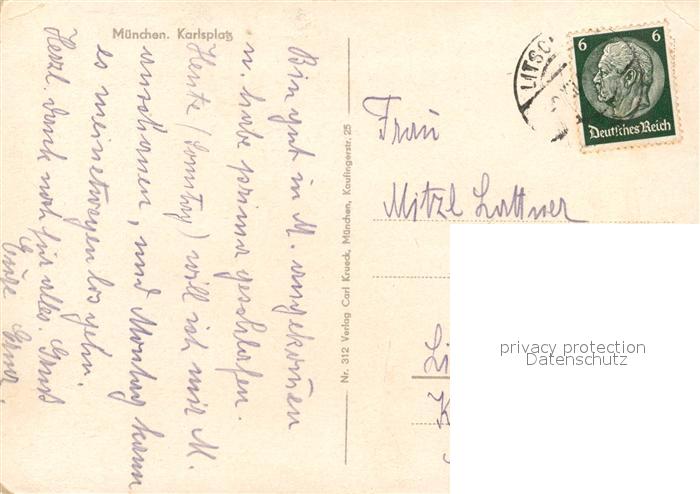 München. Karlsplatz
Bin gut in M. angekommen
u. habe prima geschlafen.
Heute (Sonntag) will ich mir M.
anschauen, und Montag kann
es meinetwegen los gehn.
Herzl. Dank noch für alles. Gruß
Nr. 312 Verlag Carl Krueck, München, Kaufingerstr. 25
LITSC
6 6
Deutsches Reich
Frau
Mitzl Lattner
Li
K
privacy protection
Datenschutz